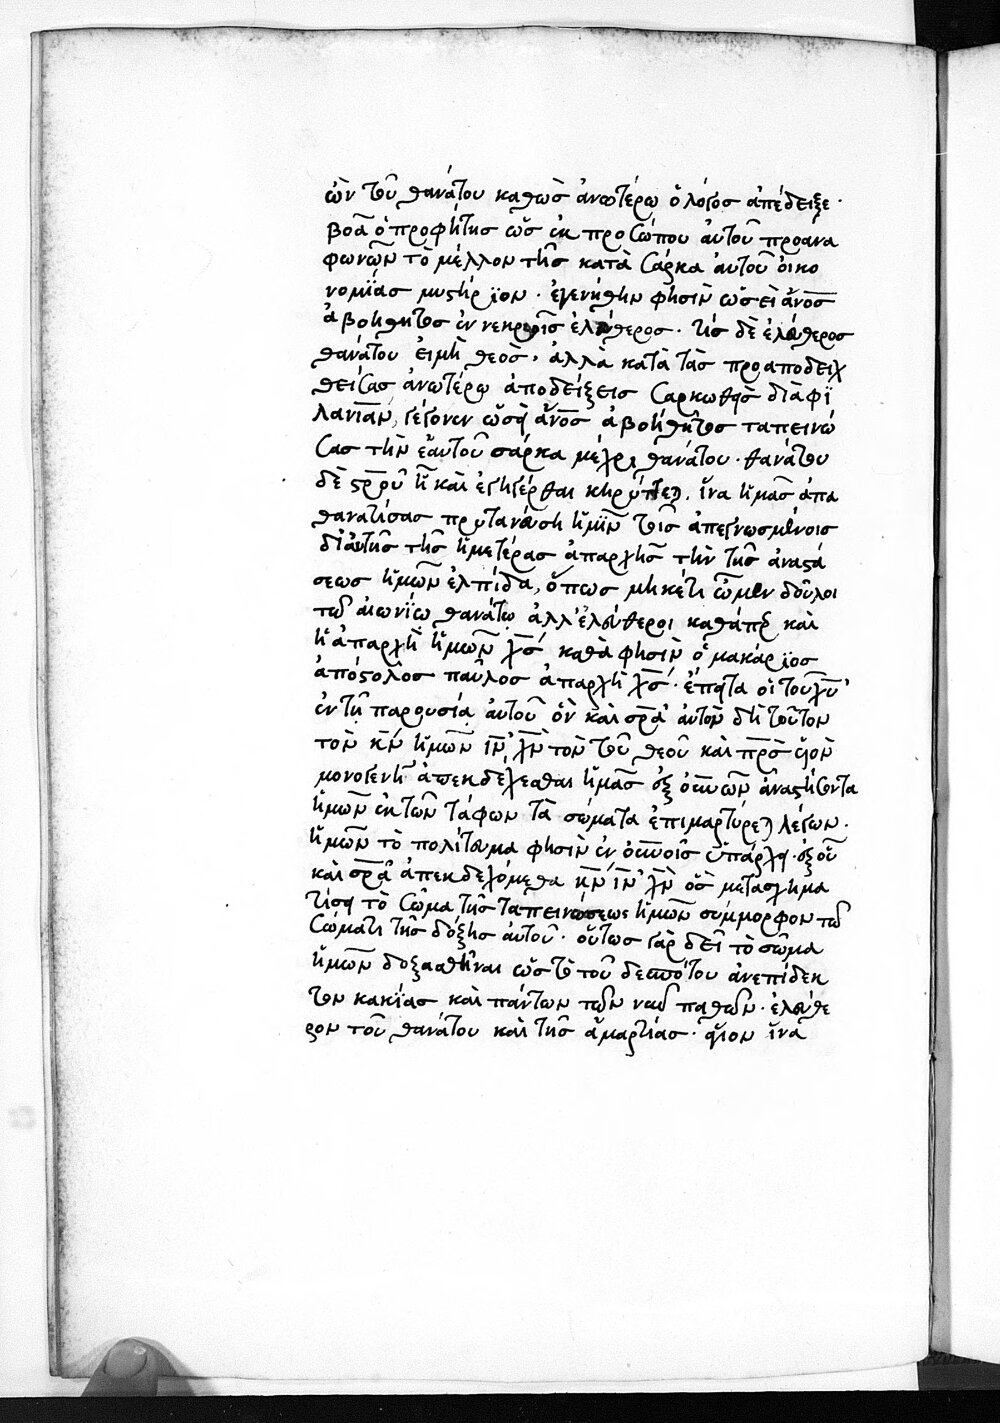 ὢν τοῦ θανάτου καθὼς ἀνωτέρω ὁ λόγος ἀπέδειξε·
βοᾶ ὁ προφήτης ὡς ἐκ προσώπου αὐτοῦ προανα
φωνῶν τὸ μέλλον τῆς κατὰ σάρκα αὐτοῦ οἰκο
νομίας μυστήριον· ἐγενήθην φησὶν ὡσεὶ ἄνος
ἀβοήθητος ἐν νεκροῖς ἐλεύθερος· τίς δὲ ἐλεύθερος
θανάτου εἰμὴ θεὸς, ἀλλὰ κατὰ τὰς προαποδειχ
θείσας ἀνωτέρω ἀποδείξεις σαρκωθεὶς διὰ φι
λανιαν, γέγονεν ὡσεὶ ἄνος ἀβοήθητος ταπεινώ
σας τὴν ἑαυτοῦ σάρκα μέχρι θανάτου· θανάτου
δὲ σροῦ ἢ καὶ ἐγηγέρθαι κηρύττεται, ἵνα ἡμᾶς ἀπα
θανατίσας πρυτανεύση ἡμῖν τοῖς ἀπεγνωσμένοις
δι' αὐτῆς τῆς ἡμετέρας ἀπαρχῆς τὴν τῆς ἀναστά
σεως ἡμῶν ἐλπίδα, ὅπως μηκέτι ὦμεν δοῦλοι
τῶ αἰωνίω θανάτω ἀλλ' ἐλεύθεροι καθάπερ καὶ
ἡ ἀπαρχὴ ἡμῶν χς καθὰ φησὶν ὁ μακάριος
ἀπόστολος παῦλος ἀπαρχὴ χς· ἔπειτα οἱ τοῦ χυ
ἐν τῆ παρουσία αὐτοῦ ὃν καὶ σρα αὐτὸν δὴ τοῦτον
τὸν κν ἡμῶν ιν χν τὸν τοῦ θεοῦ καὶ πρς υἱὸν
μονογενῆ ἀπεκδέχεσθαι ἡμᾶς ἐξ οὐνῶν ἀναστήσοντα
ἡμῶν ἐκ τῶν τάφων τὰ σώματα ἐπιμαρτύρεται λέγων·
ἡμῶν τὸ πολίτευμα φησὶν ἐν οὐνοῖς ὑπάρχει· ἐξ οὗ
καὶ σρα ἀπεκδεχόμεθα κν ιν χν ὃς μετασχημα
τίσει τὸ σῶμα τῆς ταπεινώσεως ἡμῶν σύμμορφον τῶ
σώματι τῆς δόξης αὐτοῦ· οὕτως γὰρ δεῖ τὸ σῶμα
ἡμῶν δοξασθῆναι ὡς τὸ τοῦ δεσπότου ἀνεπίδεκ
τον κακίας καὶ πάντων τῶν παθῶν· ἐλεύθε
ρον τοῦ θανάτου καὶ τῆς ἁμαρτίας· ἵνα